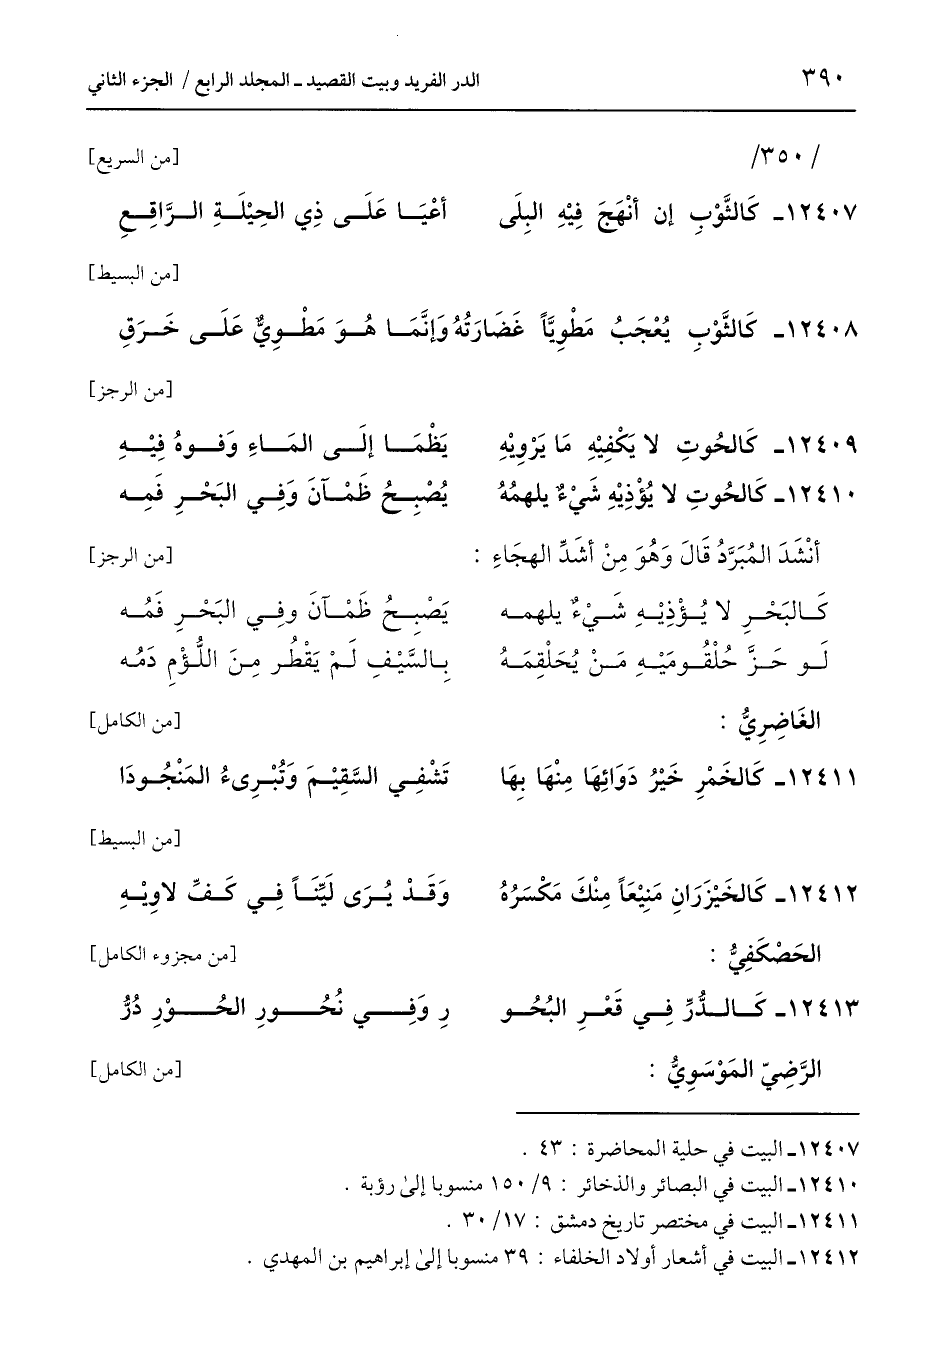 ٣٩٠ الدر الفريد وبيت القصيد ـ المجلد الرابع / الجزء الثاني
/٣٥٠/ [من السريع]
١٢٤٠٧ـ كَالثَّوْبِ إن أنْهَجَ فِيْهِ البِلَى أعْيَا عَلَى ذِي الحِيْلَةِ الرَّاقِعِ
[من البسيط]
١٢٤٠٨ـ كَالثَّوْبِ يُعْجَبُ مَطْوِيَّاً غَضَارَتُهُ وَإنَّمَا هُوَ مَطْوِيٌّ عَلَى خَرَقِ
[من الرجز]
١٢٤٠٩ـ كَالحُوتِ لا يَكْفِيْهِ مَا يَرْوِيْهِ يَظْمَا إلَى المَاءِ وَفوهُ فِيْهِ
١٢٤١٠ـ كَالحُوتِ لا يُؤْذِيْهِ شَيْءٌ يلهمُهُ يُصْبِحُ ظَمْآنَ وَفِي البَحْرِ فَمِه
أنْشَدَ المُبَرَّدُ قَالَ وَهُوَ مِنْ أشَدِّ الهِجَاءِ : [من الرجز]
كَالبَحْرِ لا يُؤْذِيْهِ شَيْءٌ يلهمه يَصْبِحُ ظَمْآنَ وفِي البَحْرِ فَمُه
لَو حَزَّ حُلْقُومَيْهِ مَنْ يُحَلْقِمَهُ بِالسَّيْفِ لَمْ يَقْطُر مِنَ اللُّؤْمِ دَمُه
الغَاضِرِيُّ : [من الكامل]
١٢٤١١ـ كَالخَمْرِ خَيْرُ دَوَائِهَا مِنْهَا بِهَا تَشْفِي السَّقِيْمَ وَتُبْرِىءُ المَنْجُودَا
[من البسيط]
١٢٤١٢ـ كَالخَيْزَرَانِ مَنِيْعَاً مِنْكَ مَكْسَرُهُ وَقَدْ يُرَى لَيِّنَاً فِي كَفِّ لاوِيْهِ
الحَصْكَفِيُّ : [من مجزوء الكامل]
١٢٤١٣ـ كَالدُّرِّ فِي قَعْرِ البُحُو رِ وَفِي نُحُورِ الحُوْرِ دُرُّ
الرَّضِيّ المَوْسَوِيُّ : [من الكامل]
١٢٤٠٧ـ البيت في حلية المحاضرة : ٤٣ .
١٢٤١٠ـ البيت في البصائر والذخائر : ٩/ ١٥٠ منسوبا إلىٰ رؤبة .
١٢٤١١ـ البيت في مختصر تاريخ دمشق : ١٧/ ٣٠ .
١٢٤١٢ـ البيت في أشعار أولاد الخلفاء : ٣٩ منسوبا إلىٰ إبراهيم بن المهدي .